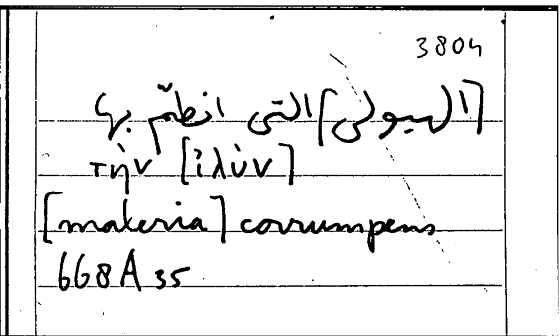 3804
[الهيولى] التى انطمّ بها
τὴν [ἰλὺν]
[materia] corrumpens
668A 35